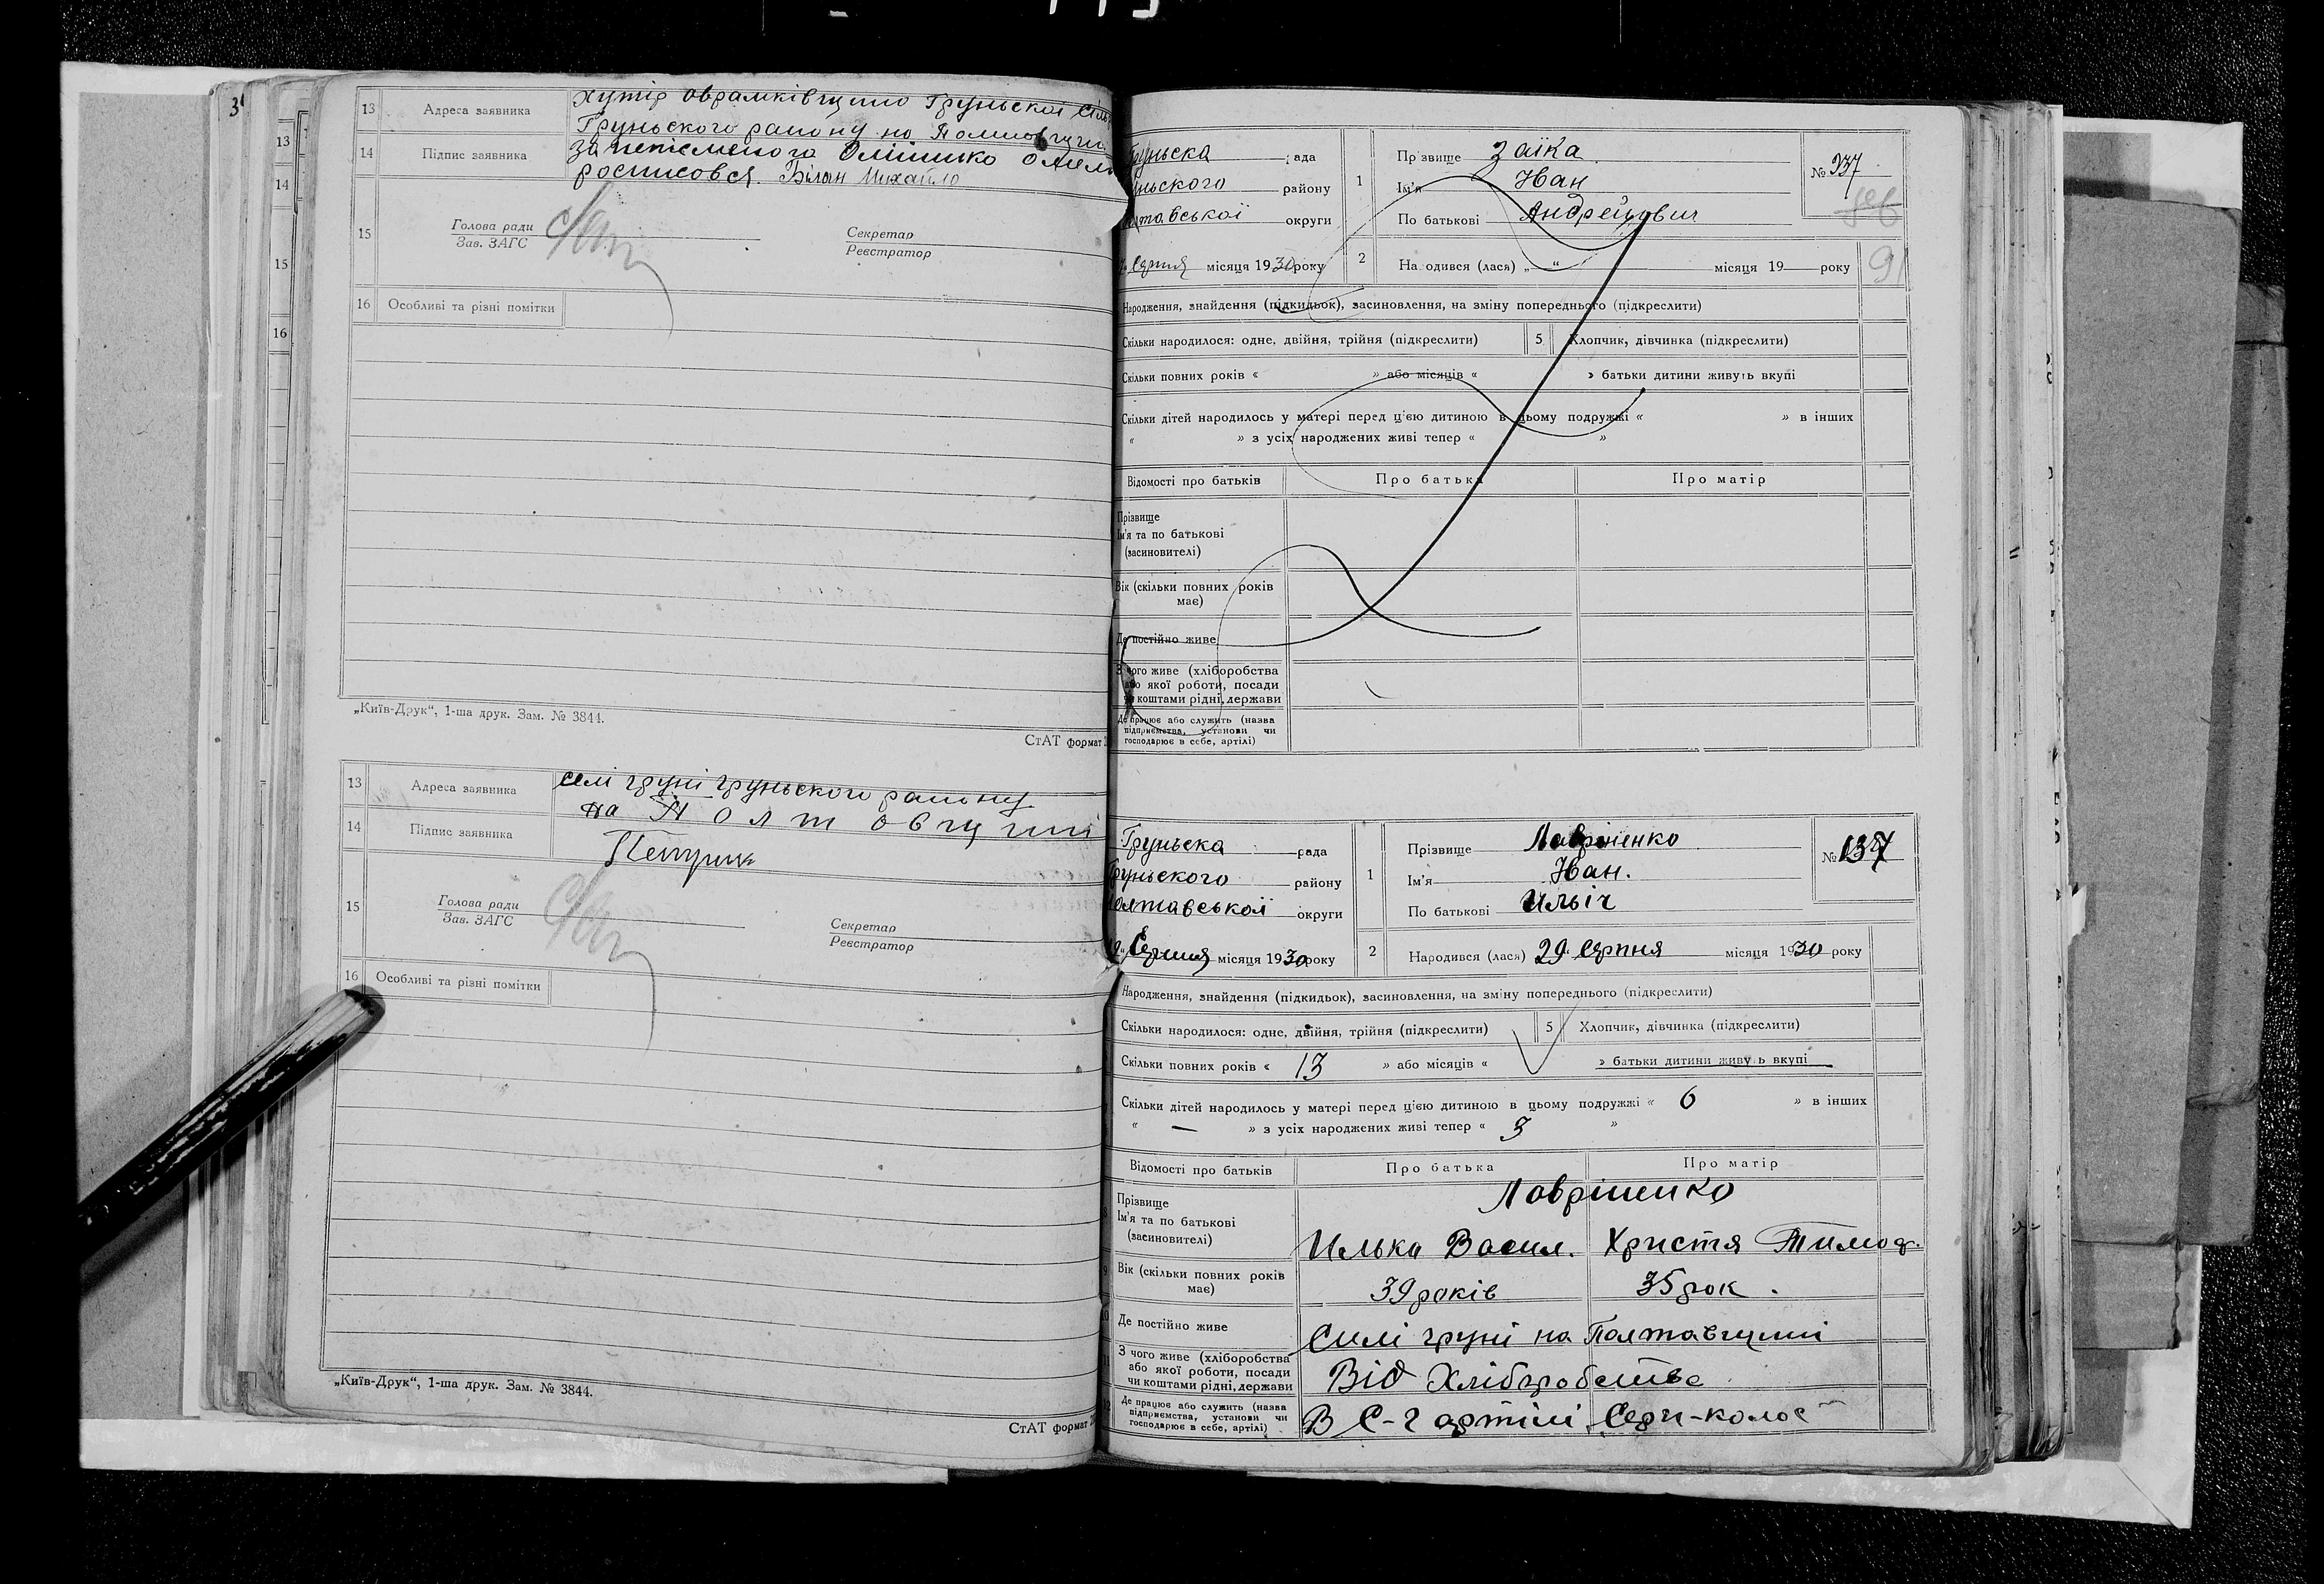 13 Адреса заявника Хутір Оврамківщино Грунської
Грунського району на Полтавщи
14 Підпис заявника За неписьменого
росписовся. Білан Михайло
15 Голова ради
Зав. ЗАГС
Секретар
Реєстратор
16 Особливі та різні помітки
„Київ-Друк“, 1-ша друк. Зам. № 3844.
СтАТ формат
13 Адреса заявника Селі груні грунського району
на Полтовщині
14 Підпис заявника
15 Голова ради
Зав. ЗАГС
Секретар
Реєстратор
16 Особливі та різні помітки
„Київ-Друк“, 1-ша друк. Зам. № 3844.
СтАТ формат
3
13
14
15
16
Груньска рада
ньского району
лтавської округи
Серпня місяця 1930 року
1 Прізвище Заіка
Ім'я Іван
По батькові Андрейович
№ 237
91
2 На одився (лася) „ “ місяця 19 року
Народження, знайдення (підкидьок), засиновлення, на зміну попереднього (підкреслити)
Скільки народилося: одне, двійня, трійня (підкреслити) 5 Хлопчик, дівчинка (підкреслити)
Скільки повних років « » або місяців « » батьки дитини живуть вкупі
Скільки дітей народилось у матері перед цією дитиною в цьому подружжі « » в інших
« » з усіх народжених живі тепер « »
Відомості про батьків Про батька Про матір
Прізвище
Ім'я та по батькові
(засиновителі)
Вік (скільки повних років
має)
Де постійно живе
З чого живе (хліборобства
або якої роботи, посади
чи коштами рідні, держави
Де працює або служить (назва
підприємства, установи чи
господарює в себе, артілі)
Груньска рада
Груньского району
олтавської округи
Серпня місяця 1930 року
1 Прізвище Лавріненко
Ім'я Іван.
По батькові Ильіч
№ 137
2 Народився (лася) 29 Серпня місяця 1930 року
Народження, знайдення (підкидьок), засиновлення, на зміну попереднього (підкреслити)
Скільки народилося: одне, двійня, трійня (підкреслити) 5 Хлопчик, дівчинка (підкреслити)
Скільки повних років « 13 » або місяців « » батьки дитини живуть вкупі
Скільки дітей народилось у матері перед цією дитиною в цьому подружжі « 6 » в інших
« — » з усіх народжених живі тепер « 3 »
Відомості про батьків Про батька Про матір
Лавріненко
Прізвище
Ім'я та по батькові
(засиновителі)
Илько Васил. Христя Тимоф.
Вік (скільки повних років
має)
39 років 35 рок.
Де постійно живе Силі груні на Полтавщині
З чого живе (хліборобства
або якої роботи, посади
чи коштами рідні, держави
Від Хліборобства
Де працює або служить (назва
підприємства, установи чи
господарює в себе, артілі)
В С-г артілі Серп-колос